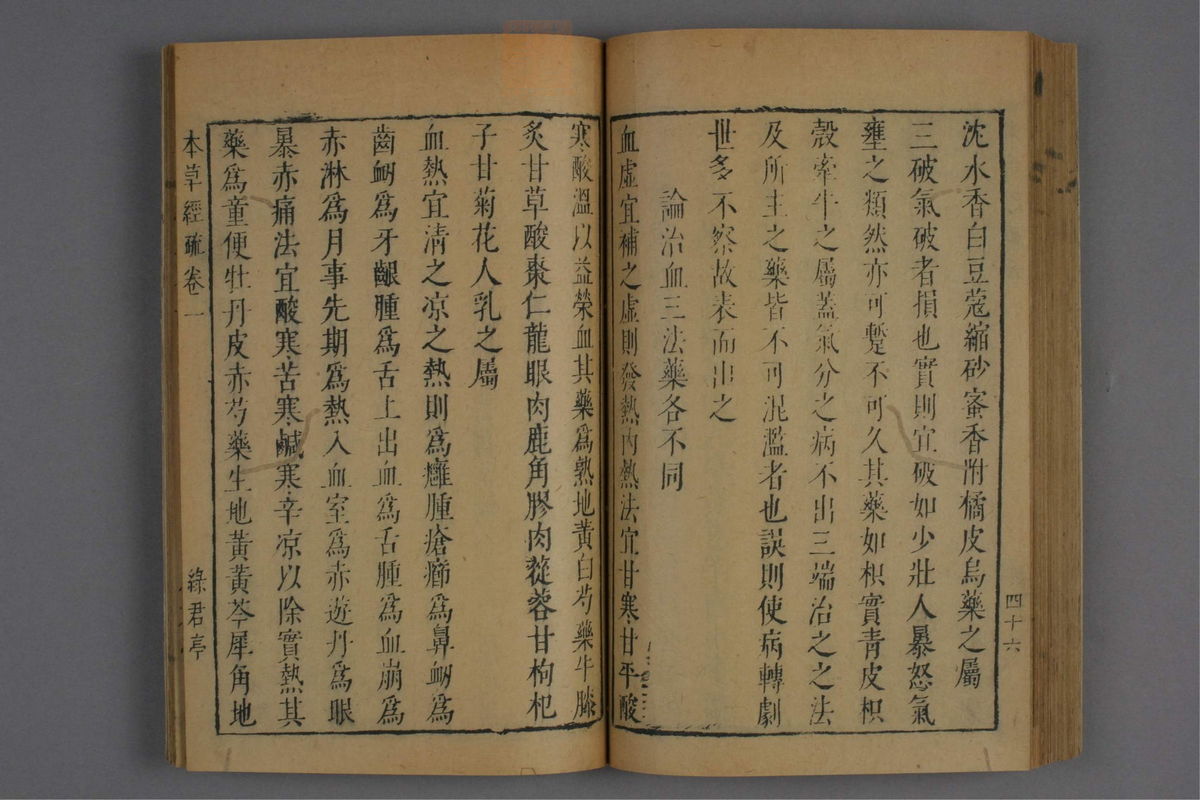 沈水香白豆蔻縮砂蜜香附橘皮烏藥之屬
三破氣破者損也實則宜破如少壯人暴怒氣
壅之類然亦可暫不可久其藥如枳實靑皮枳
殼牽牛之屬蓋氣分之病不出三端治之之法
及所主之藥皆不可混濫者也誤則使病轉劇
世多不察故表而出之
論治血三法藥各不同
血虛宜補之虛則發熱內熱法宜甘寒甘平酸
四十六
寒酸溫以益榮血其藥爲熟地黃白芍藥牛膝
炙甘草酸棗仁龍眼肉鹿角膠肉蓯蓉甘枸杞
子甘菊花人乳之屬
血熱宜清之凉之熱則爲癰腫瘡癤爲鼻衄爲
齒衄爲牙齦腫爲舌上出血爲舌腫爲血崩爲
赤淋爲月事先期爲熱入血室爲赤遊丹爲眼
暴赤痛法宜酸寒苦寒鹹寒辛凉以除實熱其
藥爲童便牡丹皮赤芍藥生地黃黃芩犀角地
本草經疏卷一
綠君亭